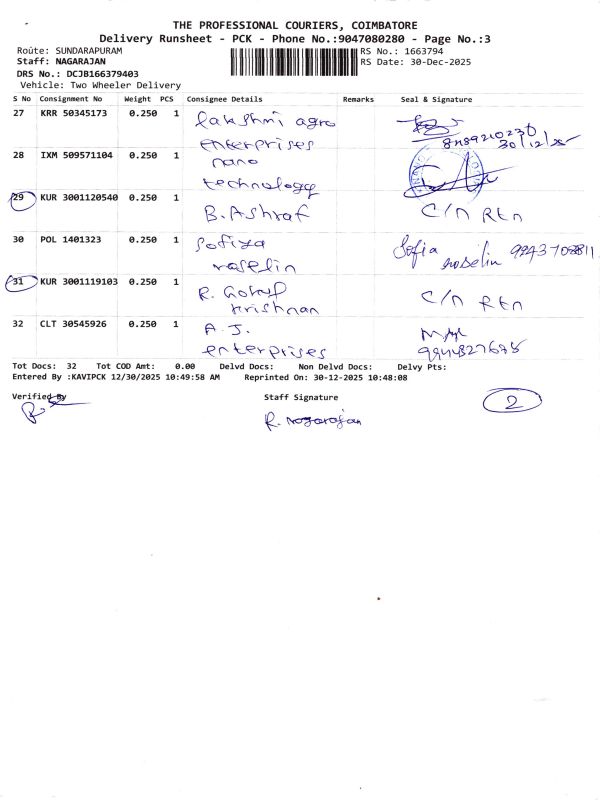 THE PROFESSIONAL COURIERS, COIMBATORE
Delivery Runsheet - PCK - Phone No.:9047080280 - Page No.:3
Route: SUNDARAPURAM RS No.: 1663794
Staff: NAGARAJAN RS Date: 30-Dec-2025
DRS No.: DCJB166379403
Vehicle: Two Wheeler Delivery
S No Consignment No Weight PCS Consignee Details Remarks Seal & Signature
27 KRR 50345173 0.250 1 lakshmi agro
enterprises
30/12/25
28 IXM 509571104 0.250 1 nano
technology
29 KUR 3001120540 0.250 1 B.Ashraf C/n Rtn
30 POL 1401323 0.250 1 Sofiya Sofia 9943708811
roselin roselin
31 KUR 3001119103 0.250 1 R. Gokul C/n Rtn
krishnan
32 CLT 30545926 0.250 1 A.J.
enterprises
Tot Docs: 32 Tot COD Amt: 0.00 Delvd Docs: Non Delvd Docs: Delvy Pts:
Entered By :KAVIPCK 12/30/2025 10:49:58 AM Reprinted On: 30-12-2025 10:48:08
Verified By Staff Signature 2
R. Nagarajan